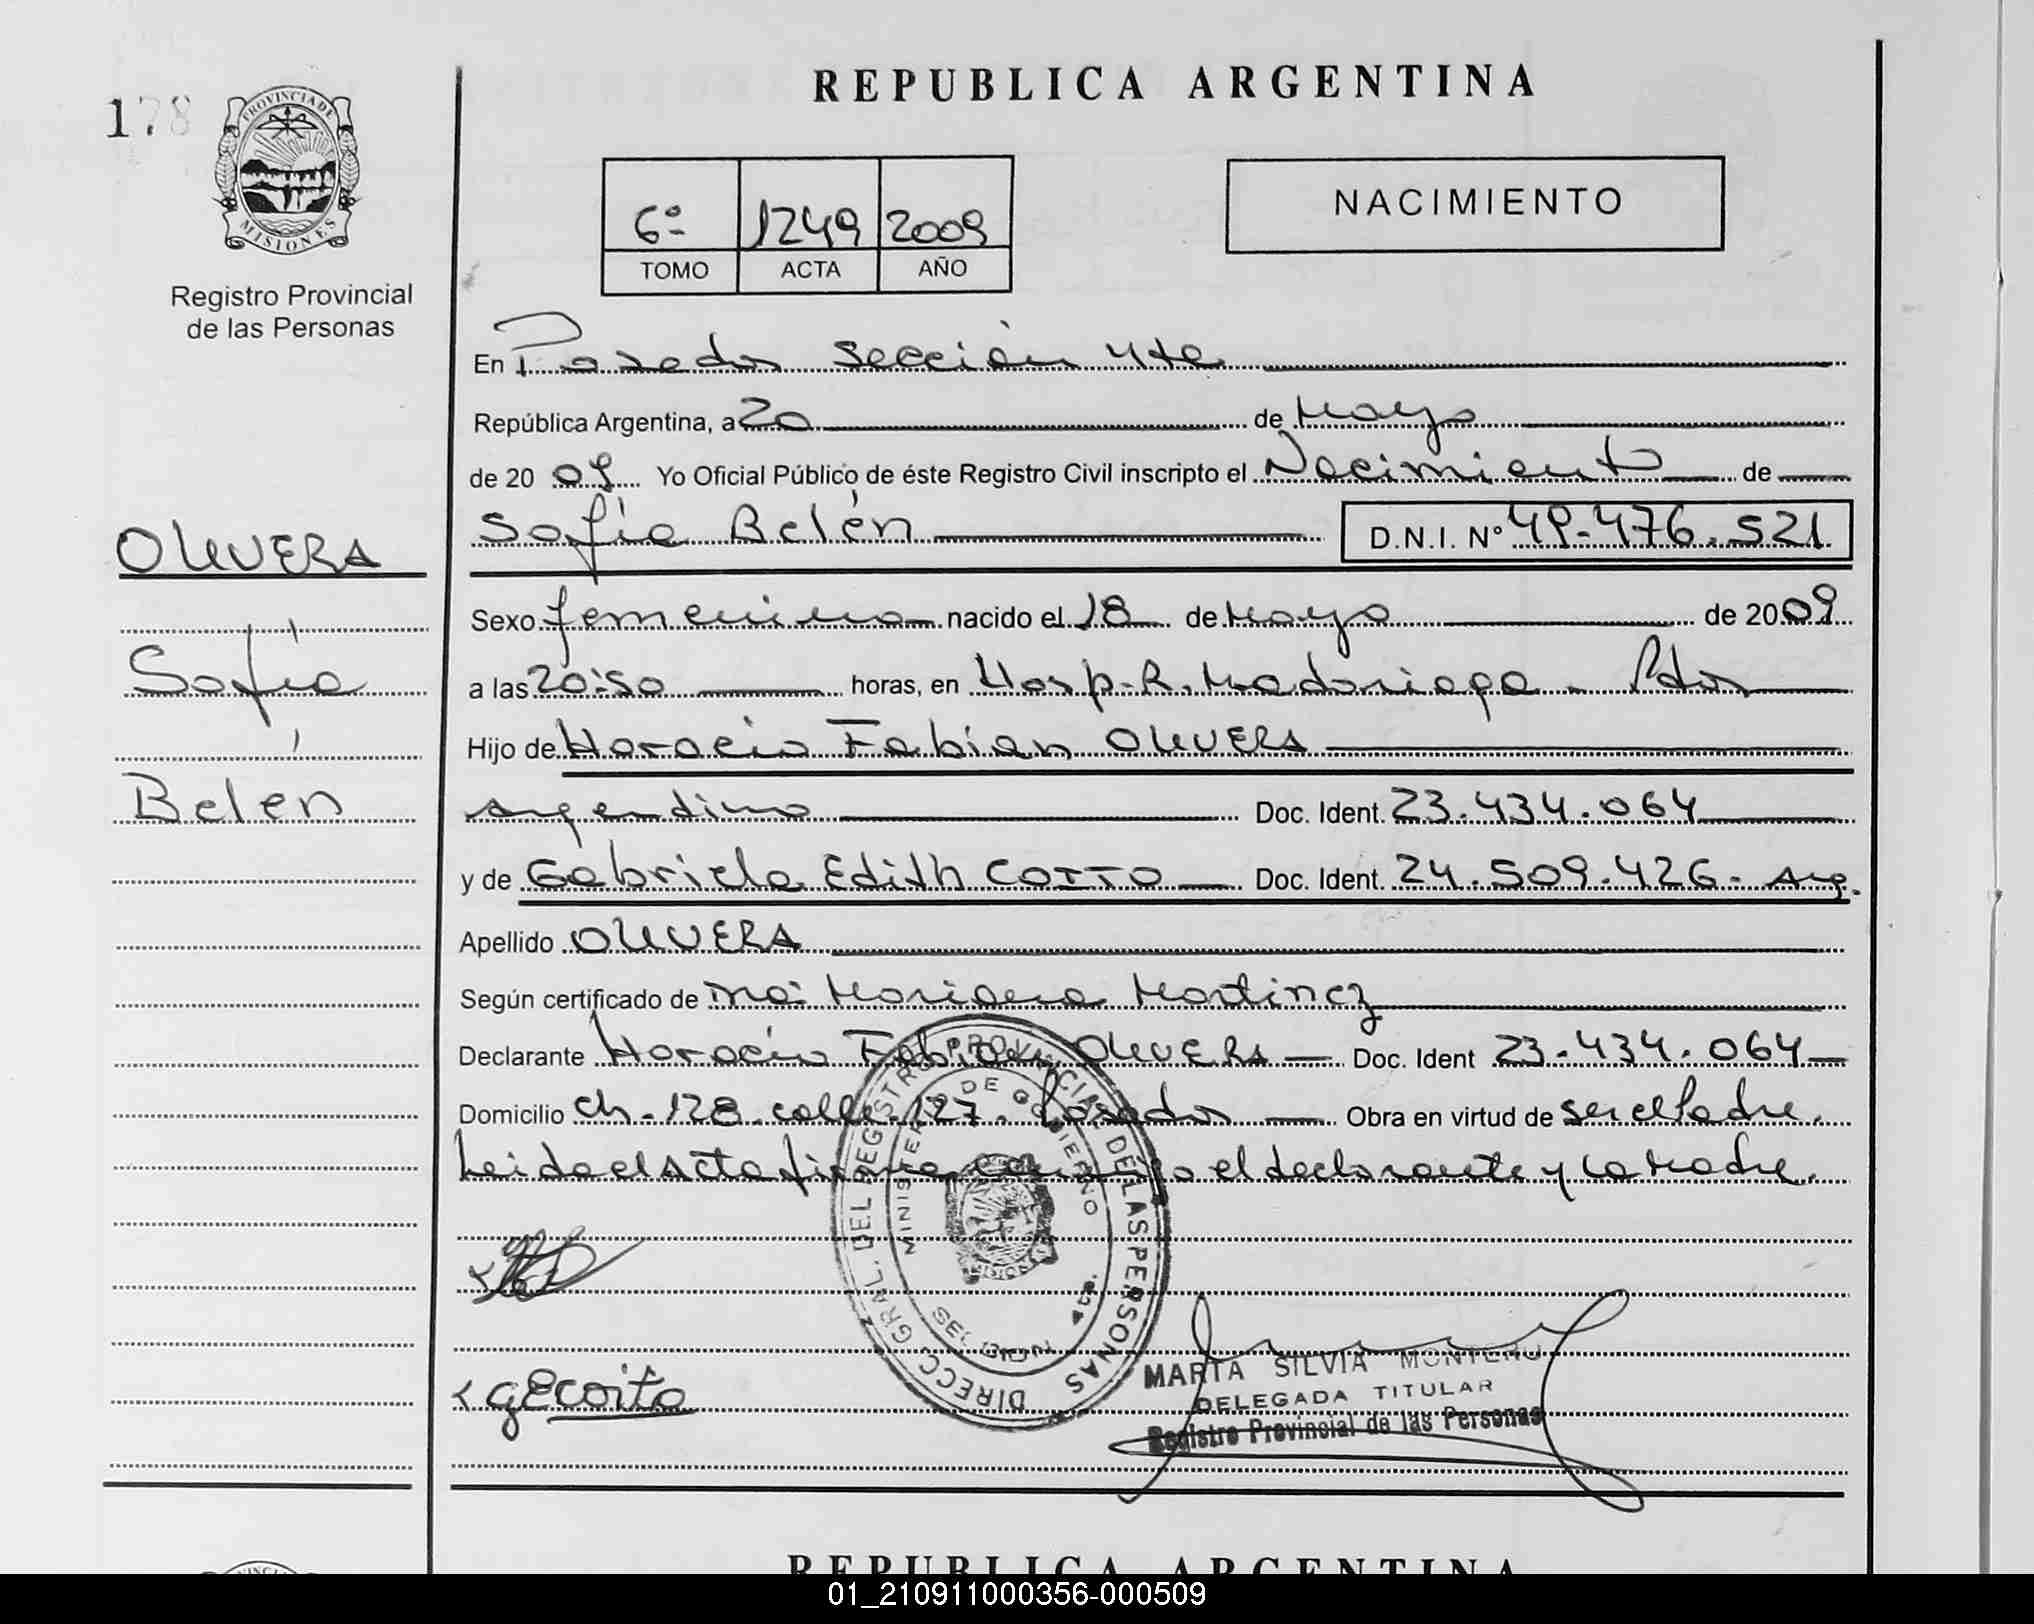 REPUBLICA ARGENTINA
178
PROVINCIA DE
MISIONES
Registro Provincial
de las Personas
6º 1249 2009
TOMO ACTA AÑO
NACIMIENTO
En Posadas Sección 4ta
República Argentina, a 20 de Mayo
de 20 09 Yo Oficial Público de éste Registro Civil inscripto el Nacimiento de
OLIVERA
Sofía
Belén
Sofía Belén D.N.I. Nº 49.476.521
Sexo femenino nacido el 18 de Mayo de 2009
a las 20:50 horas, en Hosp. R. Madariaga - Pdas
Hijo de Horacio Fabian OLIVERA
argentino Doc. Ident. 23.434.064
y de Gabriela Edith Doc. Ident. 24.509.426 - Arg.
Apellido OLIVERA
Según certificado de Ma. Mariana Martinez
Declarante Horacio Fabian OLIVERA Doc. Ident 23.434.064
Domicilio Ch. 128 calle 127. Posadas Obra en virtud de ser el Padre.
Leida el Acta firma conmigo el declarante y la Madre.
DIRECC. GRAL. DEL REGISTRO PROVINCIAL DE LAS PERSONAS
MINISTERIO DE GOBIERNO
MISIONES
MARTA SILVIA MONTERO
DELEGADA TITULAR
Registro Provincial de las Personas
REPUBLICA ARGENTINA
01_210911000356-000509